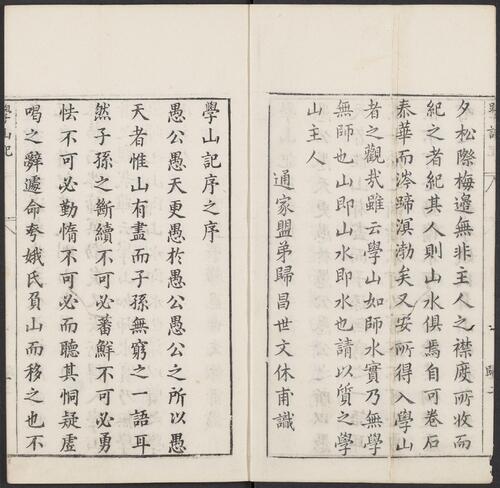 夕松際梅邊無非主人之襟度所收而
紀之者紀其人則山水俱焉自可卷石
泰華而涔蹄溟渤矣又安所得入學山
者之觀哉雖云學山如師水實乃無學
無師也山即山水即水也請以質之學
山主人
通家盟弟歸昌世文休甫識
學山記序之序
愚公愚天更愚於愚公愚公之所以愚
天者惟山有盡而子孫無窮之一語耳
然子孫之斷續不可必蕃鮮不可必勇
怯不可必勤惰不可必而聽其恫疑虛
喝之辭遽命夸娥氏負山而移之也不
學山記
一